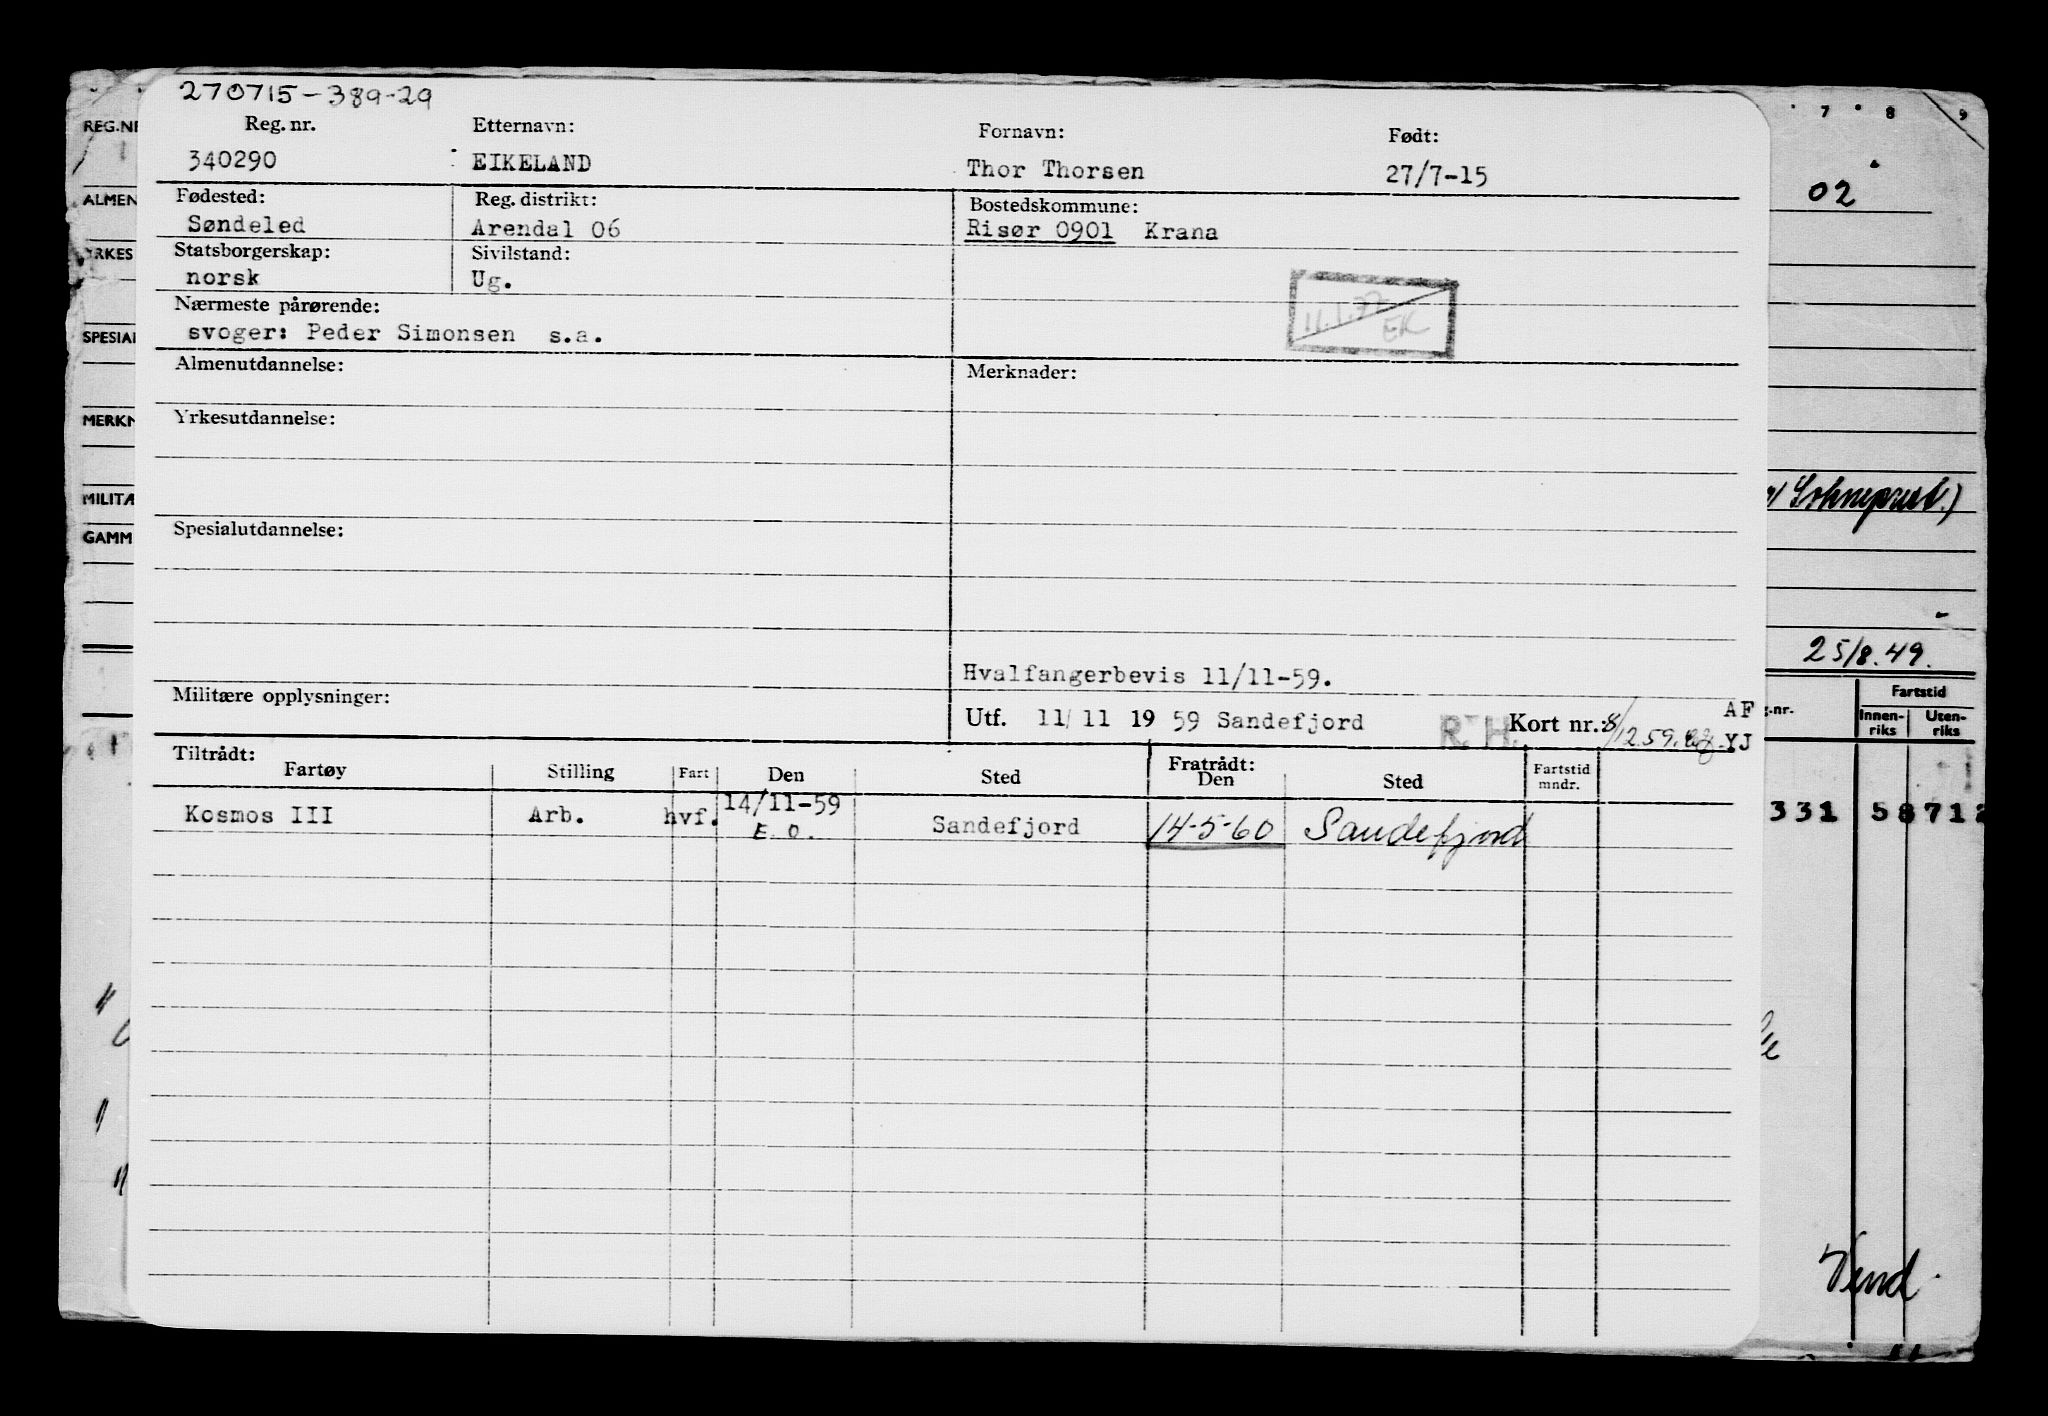 270715-389-29
Reg. nr. Etternavn: Fornavn: Født:
340290 EIKELAND Thor Thorsen 27/7-15
Fødested: Reg. distrikt: Bostedskommune:
Søndeled Arendal 06 Risør 0901 Krana
Statsborgerskap: Sivilstand:
norsk Ug.
Nærmeste pårørende:
svoger: Peder Simonsen s.a.
11.1.72
EK
Almenutdannelse: Merknader:
Yrkesutdannelse:
Spesialutdannelse:
Hvalfangerbevis 11/11-59.
Militære opplysninger:
Utf. 11/ 11 19 59 Sandefjord R. H. Kort nr.: AF
8/12.59. YJ
Tiltrådt: Fratrådt:
Fartøy Stilling Fart Den Sted Den Sted Fartstid mndr.
Kosmos III Arb. hvf. 14/11-59 Sandefjord 14-5-60 Sandefjord
E. O.
REG.NR
ALMEN
YRKES
SPESIAL
MERKN
MILITÆ
GAMM
7 8 9
02
25/8.49.
g.nr. Fartstid
Innen-riks Uten-riks
331 58712
Vend